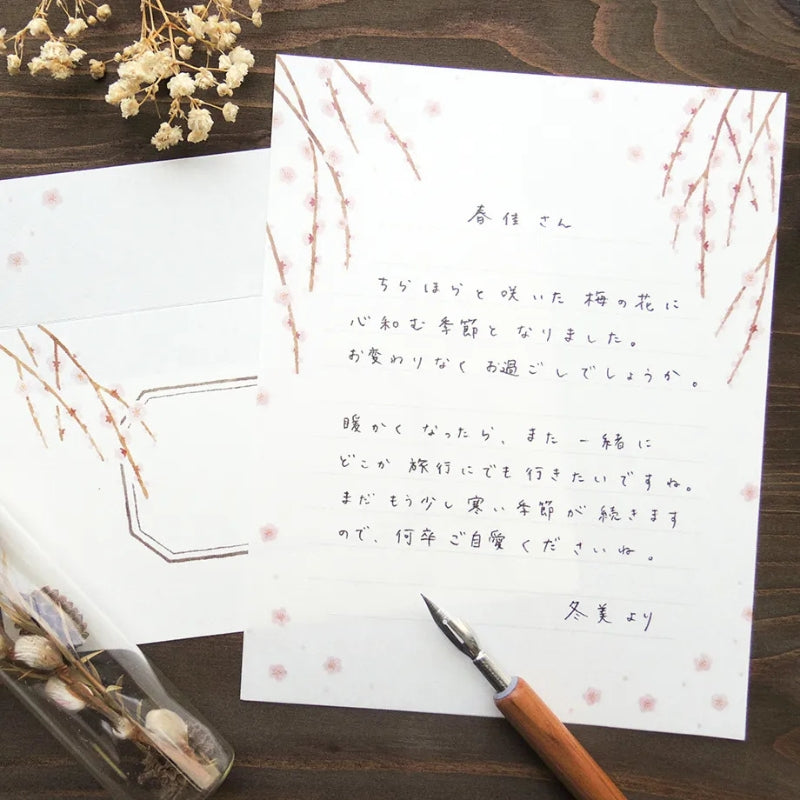 春佳さん
ちらほらと咲いた梅の花に
心和む季節となりました。
お変わりなくお過ごしでしょうか。
暖かくなったら、また一緒に
どこか旅行にでも行きたいですね。
まだもう少し寒い季節が続きます
ので、何卒ご自愛くださいね。
冬美より